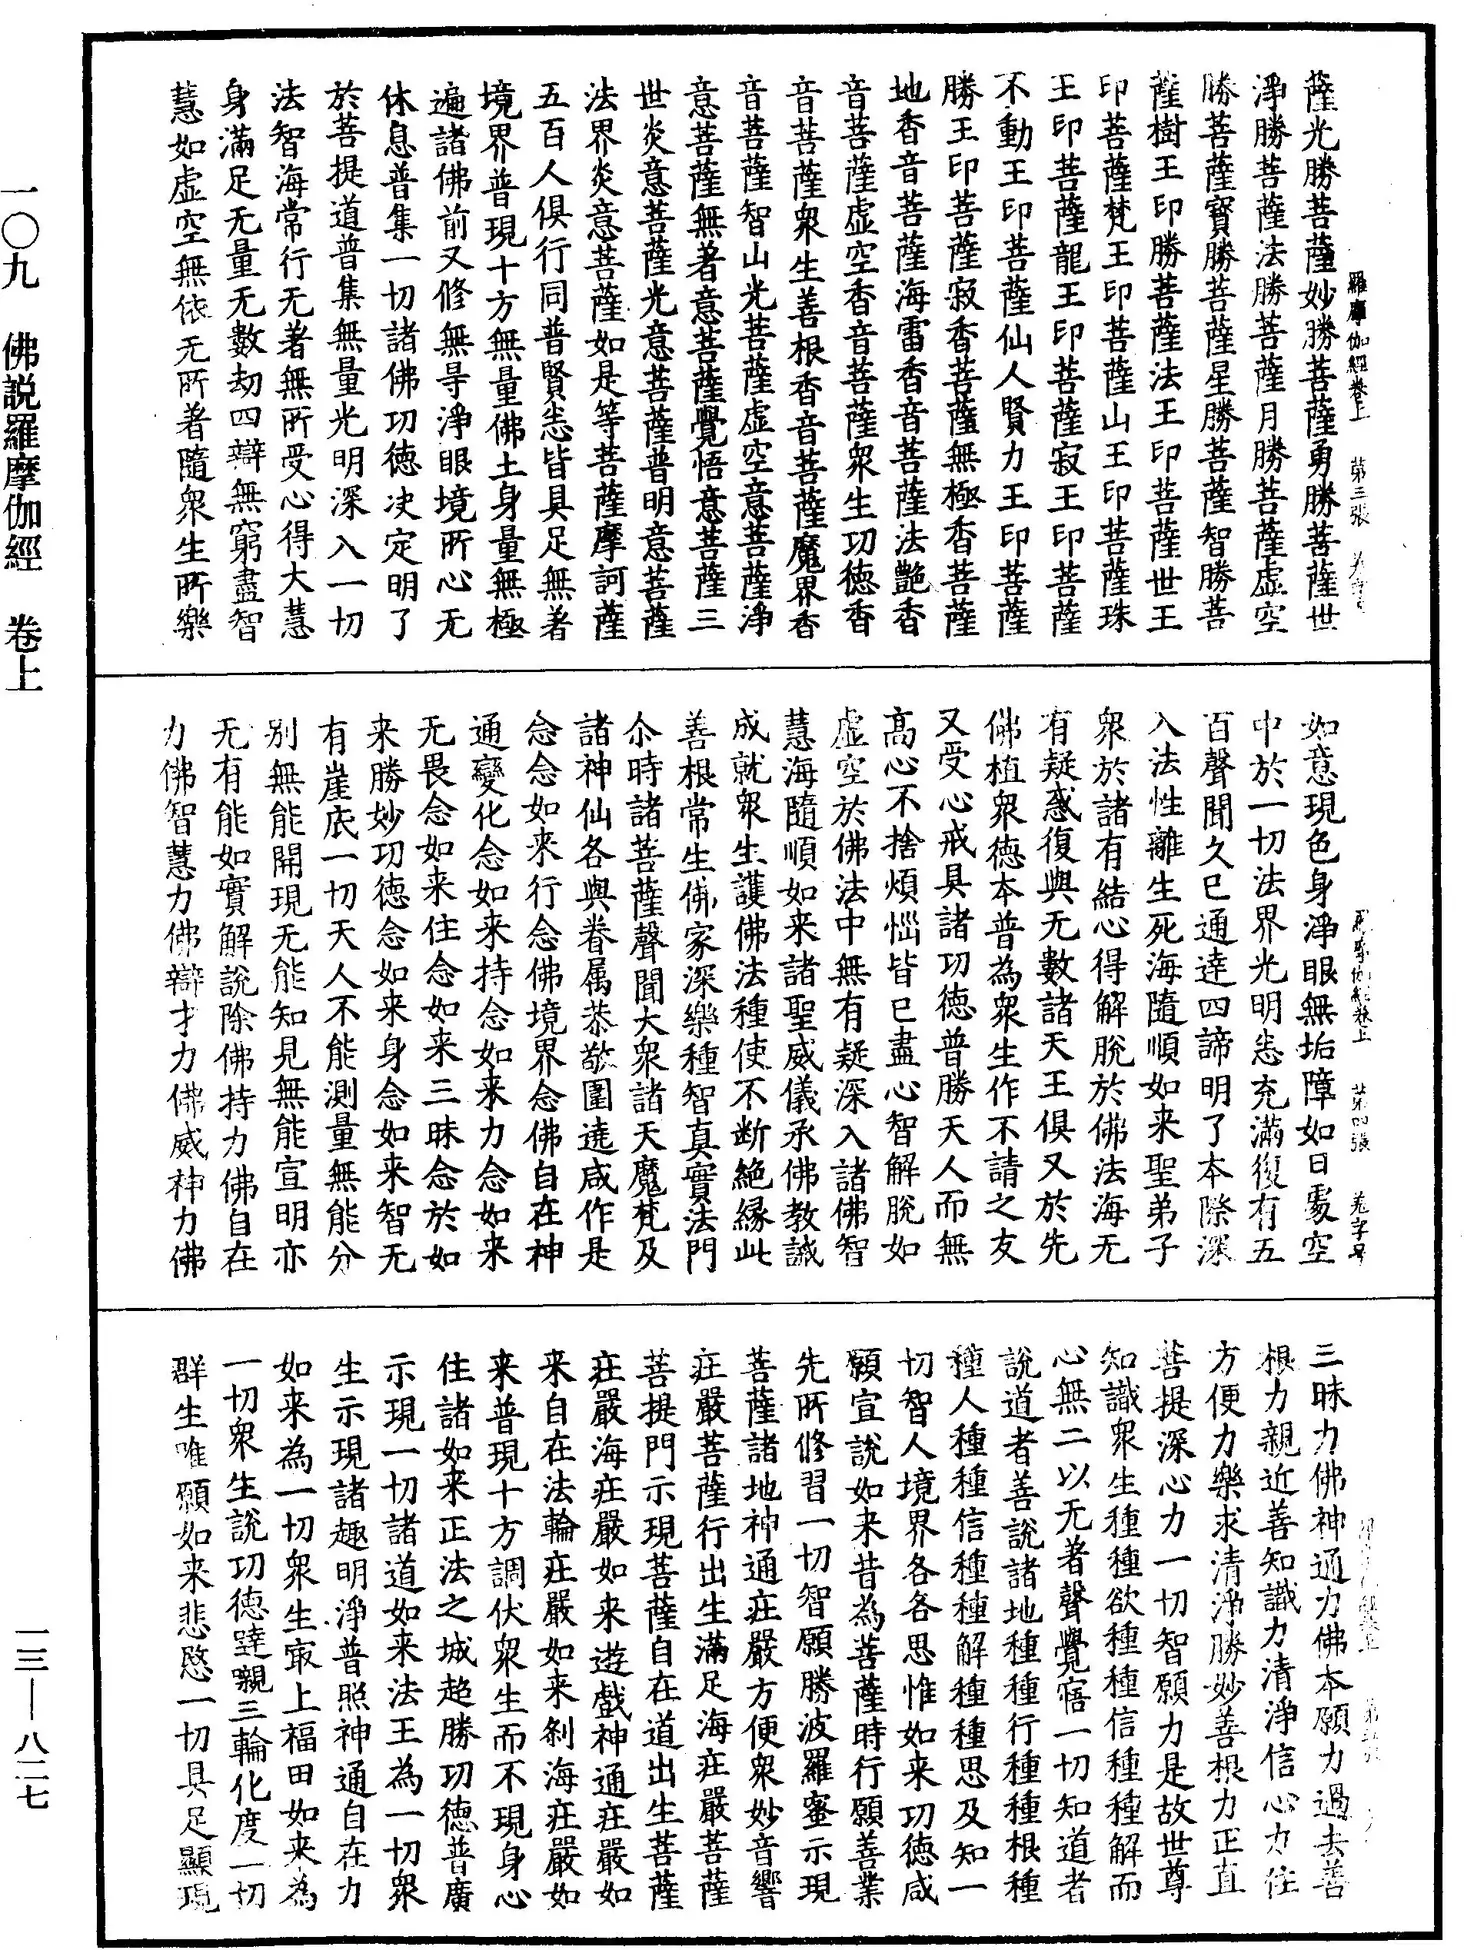 薩光勝菩薩妙勝菩薩勇勝菩薩世
淨勝菩薩法勝菩薩月勝菩薩虛空
勝菩薩寶勝菩薩星勝菩薩智勝菩
薩樹王印勝菩薩法王印菩薩世王
印菩薩梵王印菩薩山王印菩薩珠
王印菩薩龍王印菩薩寂王印菩薩
不動王印菩薩仙人賢力王印菩薩
勝王印菩薩寂香菩薩無極香菩薩
地香音菩薩海雷香音菩薩法艷香
音菩薩虛空香音菩薩衆生功德香
音菩薩衆生善根香音菩薩魔界香
音菩薩智山光菩薩虛空意菩薩淨
意菩薩無著意菩薩覺悟意菩薩三
世炎意菩薩光意菩薩普明意菩薩
法界炎意菩薩如是等菩薩摩訶薩
五百人俱行同普賢悉皆具足無著
境界普現十方無量佛土身量無極
遍諸佛前又修無㝵淨眼境所心无
休息普集一切諸佛功德決定明了
於菩提道普集無量光明深入一切
法智海常行无著無所受心得大慧
身滿足无量无數劫四辯無窮盡智
慧如虛空無依无所著隨衆生所樂
羅摩伽經卷上 第三張
如意現色身淨眼無垢障如日處空
中於一切法界光明悉充滿復有五
百聲聞久已通達四諦明了本際深
入法性離生死海隨順如来聖弟子
衆於諸有結心得解脫於佛法海无
有疑惑復與无數諸天王俱又於先
佛植衆德本普為衆生作不請之友
又受心戒具諸功德普勝天人而無
高心不捨煩惱皆已盡心智解脫如
虛空於佛法中無有疑深入諸佛智
慧海隨順如来諸聖威儀承佛教誡
成就衆生護佛法種使不断絕緣此
善根常生佛家深樂種智真實法門
尒時諸菩薩聲聞大衆諸天魔梵及
諸神仙各與眷属恭敬圍遶咸作是
念念如来行念佛境界念佛自在神
通變化念如来持念如来力念如来
无畏念如来住念如来三昧念於如
来勝妙功德念如来身念如来智无
有崖底一切天人不能測量無能分
别無能開現无能知見無能宣明亦
无有能如實解說除佛持力佛自在
力佛智慧力佛辯才力佛威神力佛
羅摩伽經卷上 第四張 卷字号
三昧力佛神通力佛本願力過去善
根力親近善知識力清淨信心力住
方便力樂求清淨勝妙善根力正直
菩提深心力一切智願力是故世尊
知識衆生種種欲種種信種種解而
心無二以无著聲覺寤一切知道者
說道者善說諸地種種行種種根種
種人種種信種種解種種思及知一
切智人境界各各思惟如来功德咸
願宣說如来昔為菩薩時行願善業
先所修習一切智願勝波羅蜜示現
菩薩諸地神通莊嚴方便衆妙音響
莊嚴菩薩行出生滿足海莊嚴菩薩
菩提門示現菩薩自在道出生菩薩
莊嚴海莊嚴如来遊戲神通莊嚴如
来自在法輪莊嚴如来刹海莊嚴如
来普現十方調伏衆生而不現身心
住諸如来正法之城超勝功德普廣
示現一切諸道如来法王為一切衆
生示現諸趣明淨普照神通自在力
如来為一切衆生冣上福田如来為
一切衆生說功德達嚫三輪化度一切
群生唯願如来悲愍一切具足顯現
一〇九 佛說羅摩伽經 卷上
一三—八二七